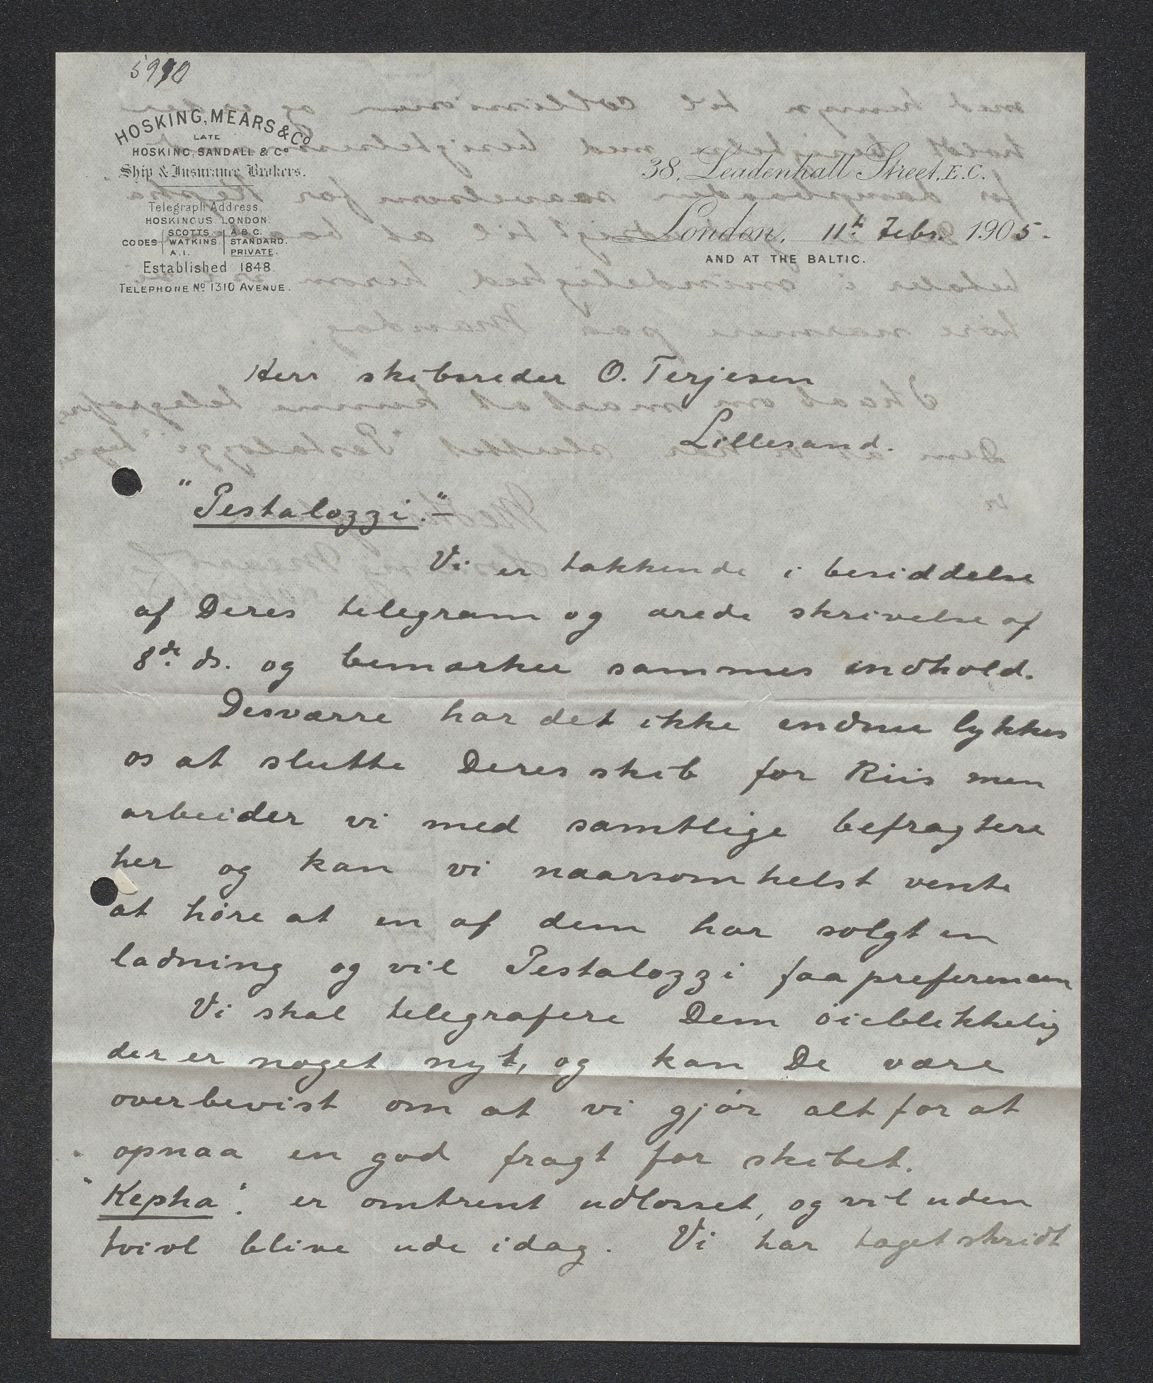 5990
HOSKING, MEARS & Co
LATE
HOSKING, SANDALL & Co
Ship & Insurance Brokers.
Telegraph Address,
HOSKINOUS LONDON.
CODES SCOTTS A.B.C.
WATKINS STANDARD.
A.I. PRIVATE.
Established 1848.
TELEPHONE No 1310 AVENUE.
38, Leadenhall Street, E.C.
London, 11th Febr. 1905.
AND AT THE BALTIC.
Herr skibsreder O. Terjesen
Lillesand.
"Pestalozzi."
Vi er takkende i besiddelse
af Deres telegram og ærede skrivelse af
8de ds. og bemærker sammes indhold.
Desværre har det ikke endnu lykkes
os at slutte Deres skib for Riis men
arbeider vi med samtlige befragtere
her og kan vi naarsomhelst vente
at høre at en af dem har solgt en
ladning og vil Pestalozzi faa preferencen
Vi skal telegrafere Dem øieblikkelig
der er noget nyt, og kan De være
overbevist om at vi gjør alt for at
opnaa en god fragt for skibet.
"Kepha". er omtrent udlosset, og vil uden
tvivl blive ude idag. Vi har taget skridt